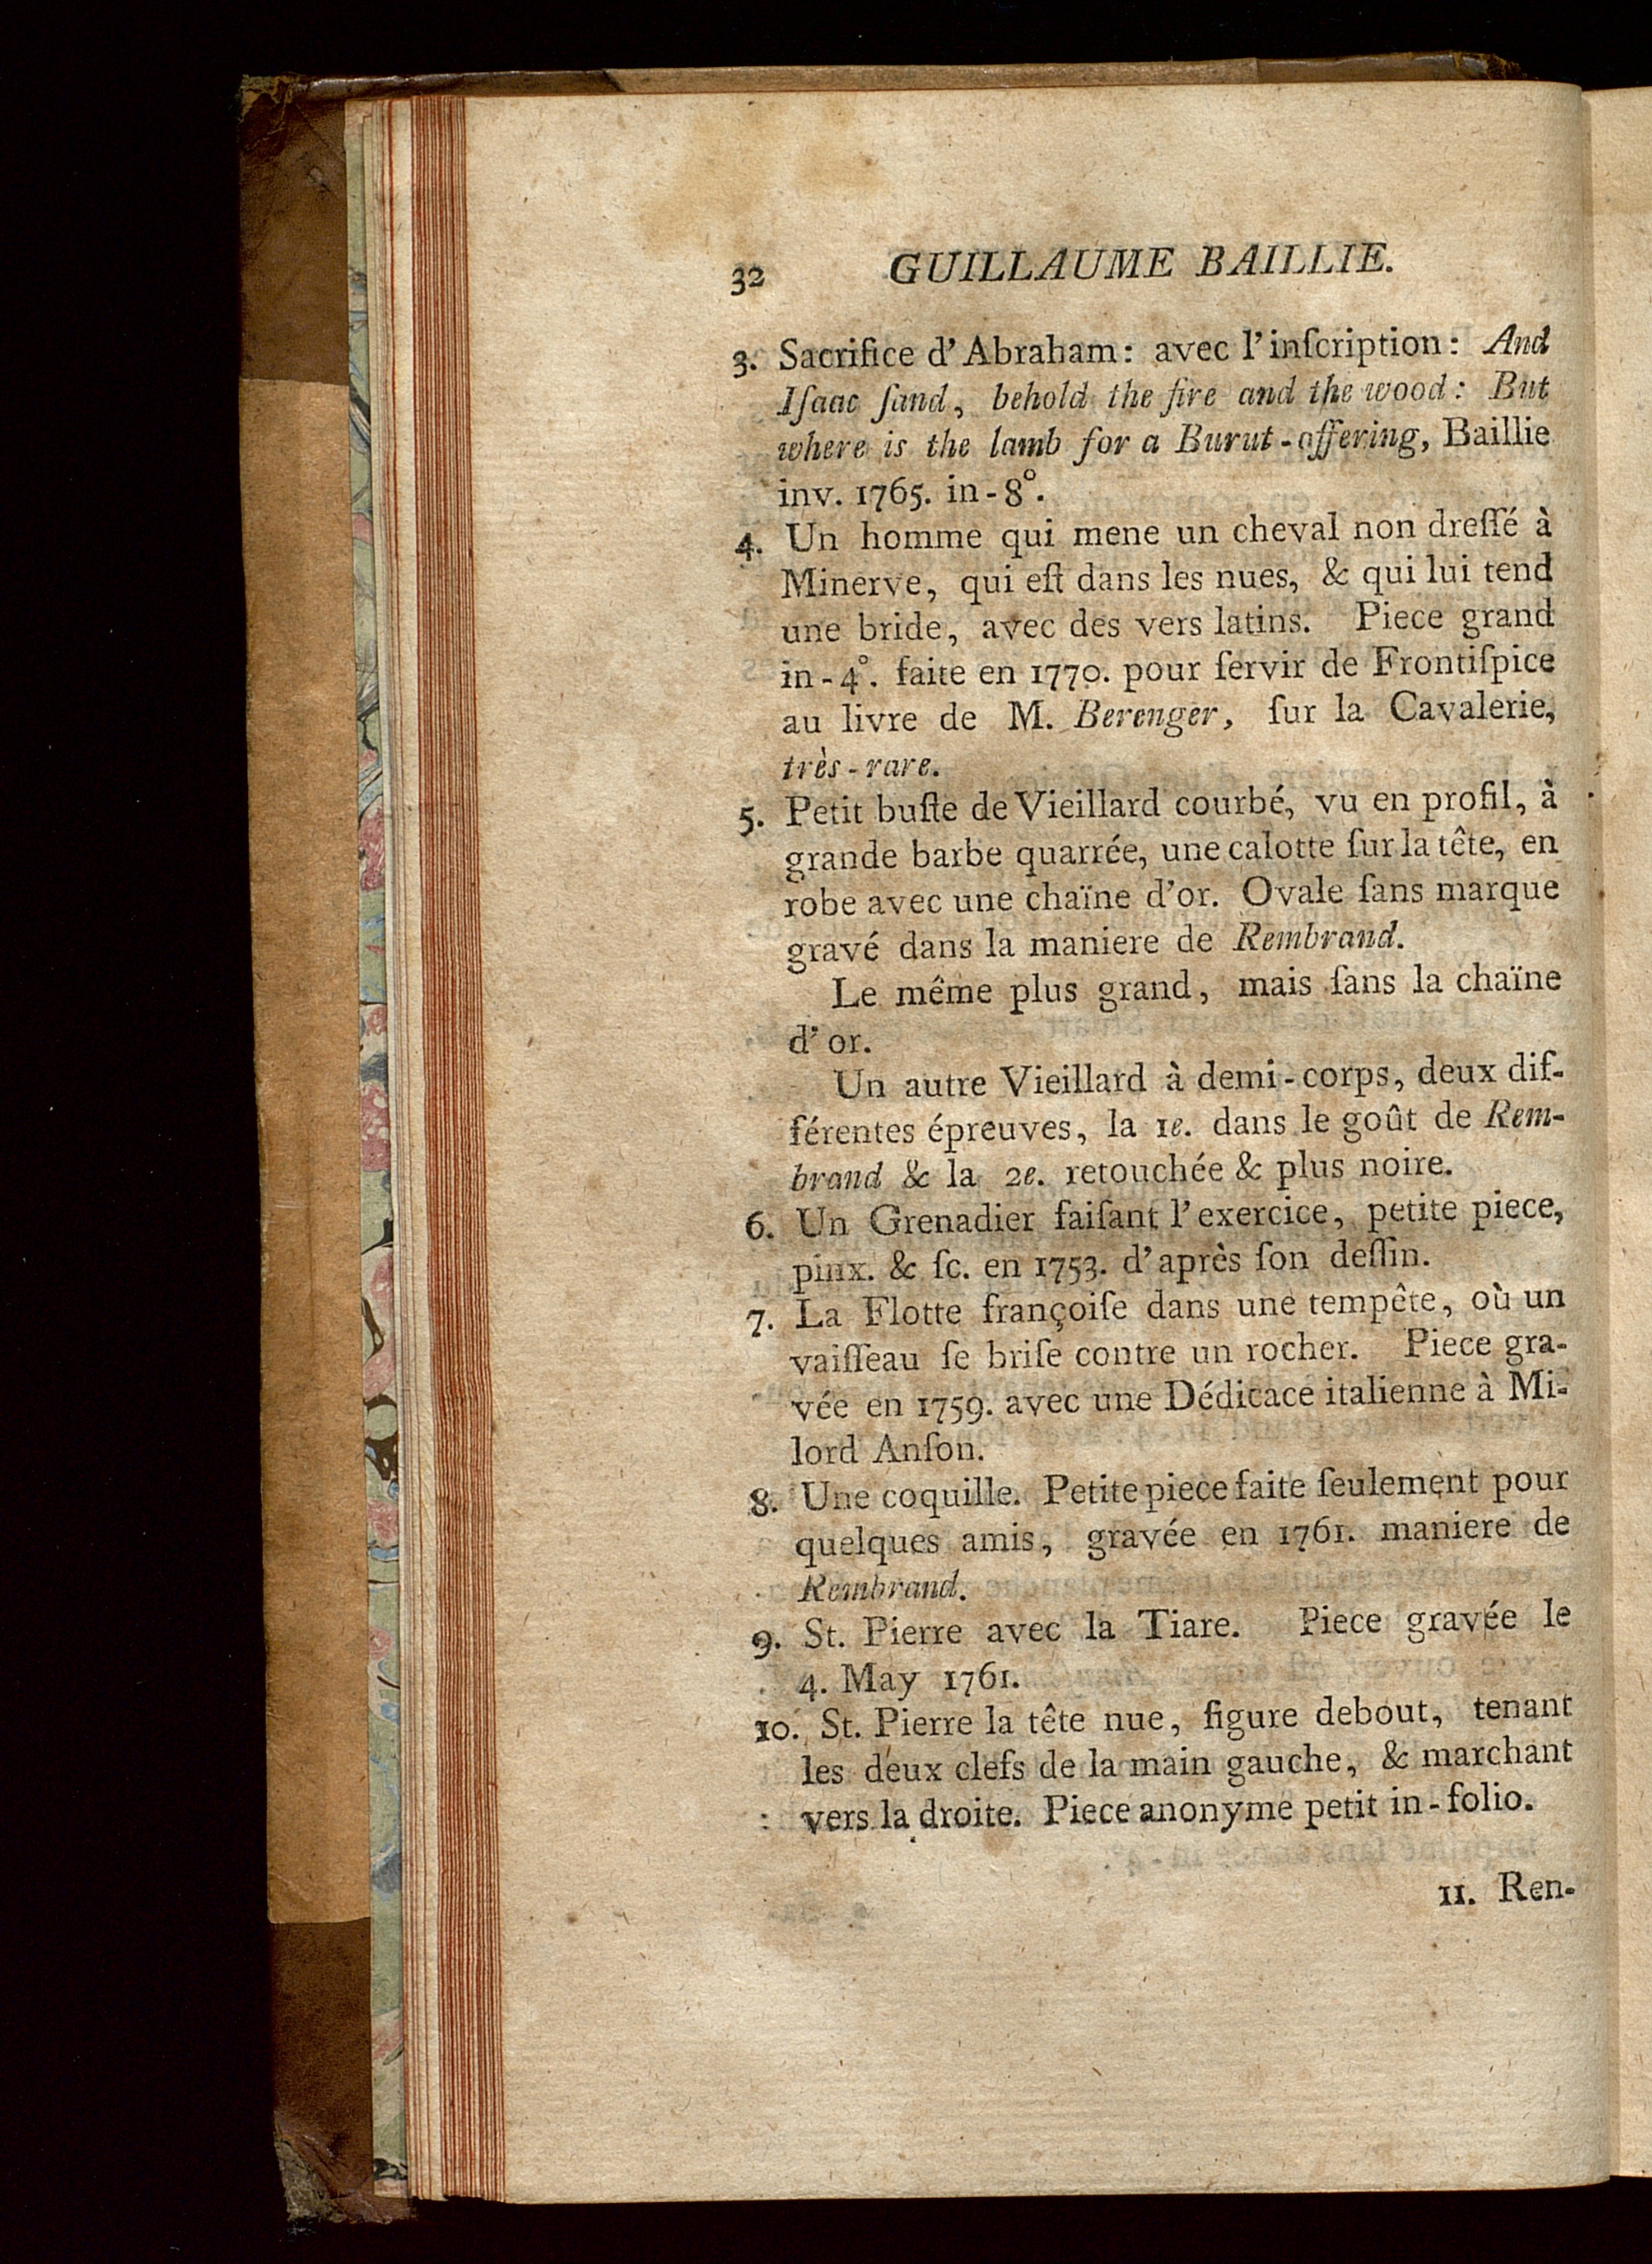 32 GUILLAUME BAILLIE.
3. Sacrifice d'Abraham: avec l'inſcription: And
Iſaac ſand, behold the fire and the wood: But
where is the lamb for a Burut-offering, Baillie
inv. 1765. in-8°.
4. Un homme qui mene un cheval non dreſſé à
Minerve, qui eſt dans les nues, & qui lui tend
une bride, avec des vers latins. Piece grand
in-4°. faite en 1770. pour ſervir de Frontiſpice
au livre de M. Berenger, ſur la Cavalerie,
très-rare.
5. Petit buſte de Vieillard courbé, vu en profil, à
grande barbe quarrée, une calotte ſur la tête, en
robe avec une chaïne d'or. Ovale ſans marque
gravé dans la maniere de Rembrand.
Le même plus grand, mais ſans la chaïne
d'or.
Un autre Vieillard à demi-corps, deux dif-
férentes épreuves, la 1e. dans le goût de Rem-
brand & la 2e. retouchée & plus noire.
6. Un Grenadier faiſant l'exercice, petite piece,
pinx. & ſc. en 1753. d'après ſon deſſin.
7. La Flotte françoiſe dans une tempête, où un
vaiſſeau ſe briſe contre un rocher. Piece gra-
vée en 1759. avec une Dédicace italienne à Mi-
lord Anſon.
8. Une coquille. Petite piece faite ſeulement pour
quelques amis, gravée en 1761. maniere de
Rembrand.
9. St. Pierre avec la Tiare. Piece gravée le
4. May 1761.
10. St. Pierre la tête nue, figure debout, tenant
les deux clefs de la main gauche, & marchant
vers la droite. Piece anonyme petit in-folio.
11. Ren-